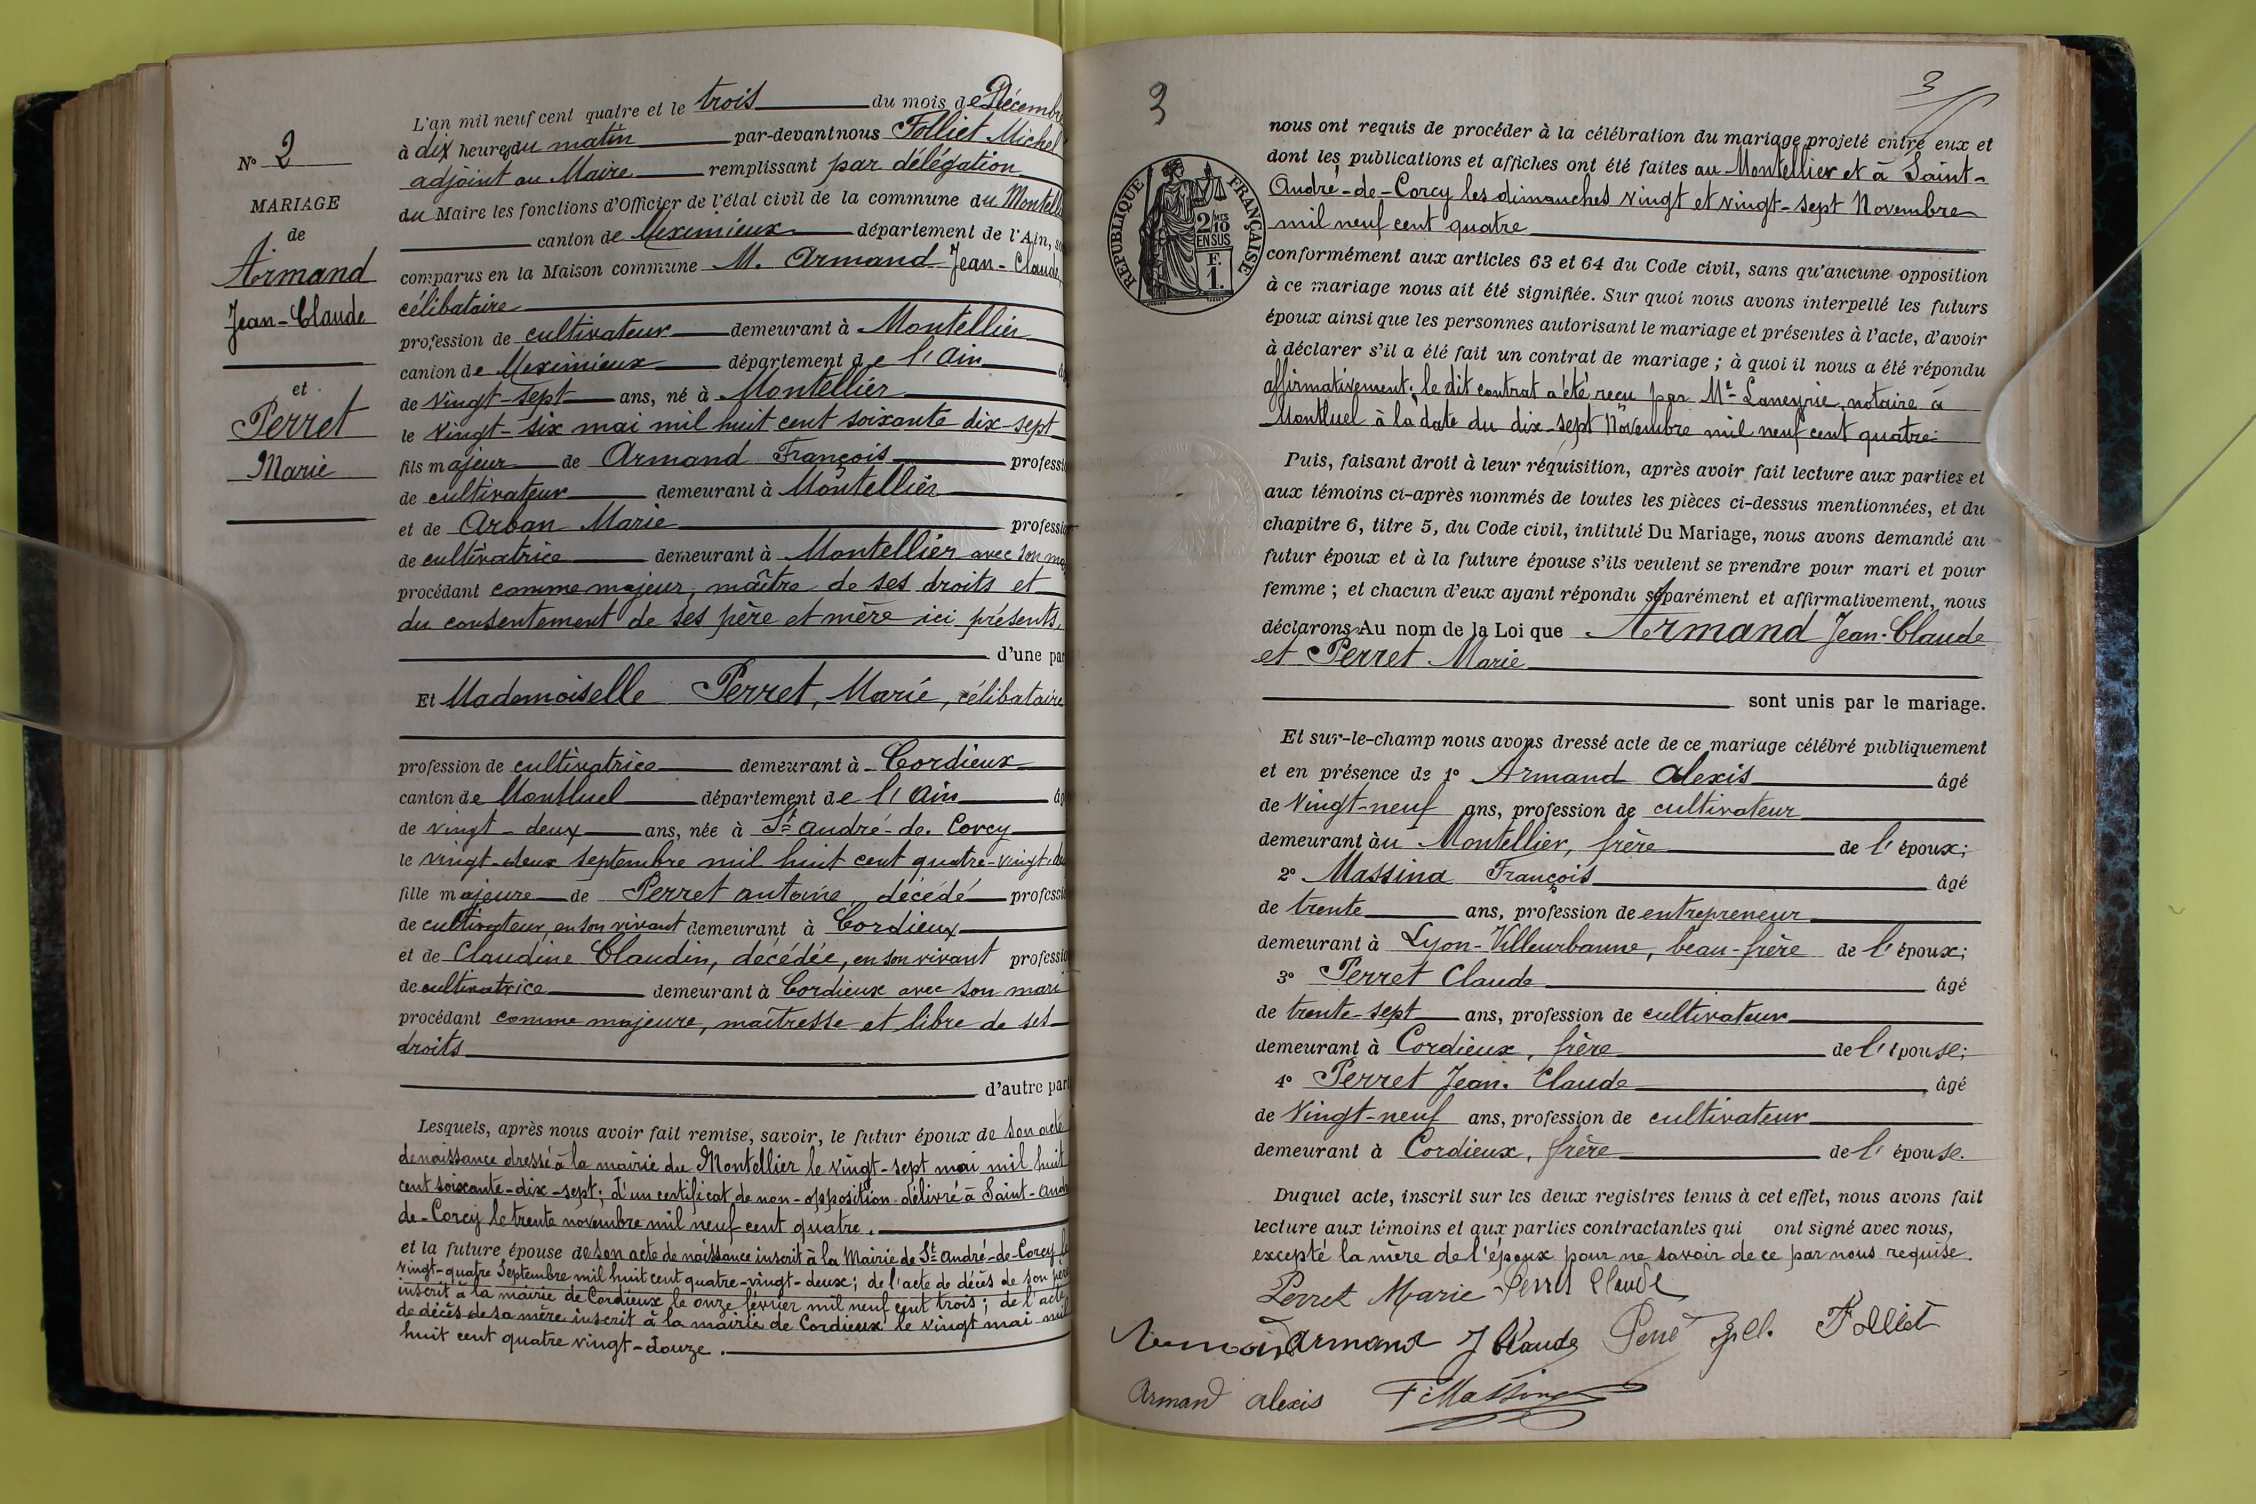 N° 2
MARIAGE
de
Armand
Jean-Claude
et
Perret
Marie
L'an mil neuf cent quatre et le trois du mois de Décembre
à dix heures du matin par-devant nous Folliet Michel
adjoint au Maire remplissant par délégation
du Maire les fonctions d'Officier de l'état civil de la commune du Montelli
canton de Meximieux département de l'Ain, so
comparus en la Maison commune M. Armand Jean-Claude,
célibataire
profession de cultivateur demeurant à Montellier
canton de Meximieux département de l'Ain âg
de vingt-sept ans, né à Montellier
le vingt-six mai mil huit cent soixante dix-sept
fils majeur de Armand François professi
de cultivateur demeurant à Montellier
et de Arban Marie professi
de cultivatrice demeurant à Montellier avec son ma
procédant comme majeur, maître de ses droits et
du consentement de ses père et mère ici présents,
d'une par
Et Mademoiselle Perret, Marie, célibataire
profession de cultivatrice demeurant à Cordieux
canton de Montluel département de l'Ain âg
de vingt-deux ans, née à St André-de-Corcy
le vingt-deux septembre mil huit cent quatre-vingt-de
fille majeure de Perret Antoine, décédé professi
de cultivateur, en son vivant demeurant à Cordieux
et de Claudine Claudin, décédée, en son vivant professi
de cultivatrice demeurant à Cordieux avec son mari
procédant comme majeure, maîtresse et libre de ses
droits
d'autre part
Lesquels, après nous avoir fait remise, savoir, le futur époux de son acte
de naissance dressé à la mairie du Montellier le vingt-sept mai mil huit
cent soixante-dix-sept; d'un certificat de non-opposition délivré à Saint-André
de-Corcy le trente novembre mil neuf cent quatre.
et la future épouse de son acte de naissance inscrit à la Mairie de St André-de-Corcy le
vingt-quatre Septembre mil huit cent quatre-vingt-deux; de l'acte de décès de son père
inscrit à la mairie de Cordieux le onze février mil neuf cent trois; de l'acte
de décès de sa mère inscrit à la mairie de Cordieux le vingt mai mil
huit cent quatre vingt-douze.
3
3
RÉPUBLIQUE FRANÇAISE
2/10 EN SUS
F. 1.
nous ont requis de procéder à la célébration du mariage projeté entre eux et
dont les publications et affiches ont été faites au Montellier et à Saint-
André-de-Corcy les dimanches vingt et vingt-sept Novembre
mil neuf cent quatre
conformément aux articles 63 et 64 du Code civil, sans qu'aucune opposition
à ce mariage nous ait été signifiée. Sur quoi nous avons interpellé les futurs
époux ainsi que les personnes autorisant le mariage et présentes à l'acte, d'avoir
à déclarer s'il a été fait un contrat de mariage; à quoi il nous a été répondu
affirmativement; le dit contrat a été reçu par Me Laneyrie, notaire à
Montluel à la date du dix-sept Novembre mil neuf cent quatre.
Puis, faisant droit à leur réquisition, après avoir fait lecture aux parties et
aux témoins ci-après nommés de toutes les pièces ci-dessus mentionnées, et du
chapitre 6, titre 5, du Code civil, intitulé Du Mariage, nous avons demandé au
futur époux et à la future épouse s'ils veulent se prendre pour mari et pour
femme; et chacun d'eux ayant répondu séparément et affirmativement, nous
déclarons Au nom de la Loi que Armand Jean-Claude
et Perret Marie
sont unis par le mariage.
Et sur-le-champ nous avons dressé acte de ce mariage célébré publiquement
et en présence de 1° Armand Alexis âgé
de vingt-neuf ans, profession de cultivateur
demeurant au Montellier, frère de l'époux;
2° Massina François âgé
de trente ans, profession de entrepreneur
demeurant à Lyon-Villeurbanne, beau-frère de l'époux;
3° Perret Claude âgé
de trente-sept ans, profession de cultivateur
demeurant à Cordieux, frère de l'épouse;
4° Perret Jean-Claude âgé
de vingt-neuf ans, profession de cultivateur
demeurant à Cordieux, frère de l'épouse.
Duquel acte, inscrit sur les deux registres tenus à cet effet, nous avons fait
lecture aux témoins et aux parties contractantes qui ont signé avec nous,
excepté la mère de l'époux pour ne savoir de ce par nous requise.
Perret Marie Perret Claude
Armand J Claude Folliet
Armand Alexis F. Massina